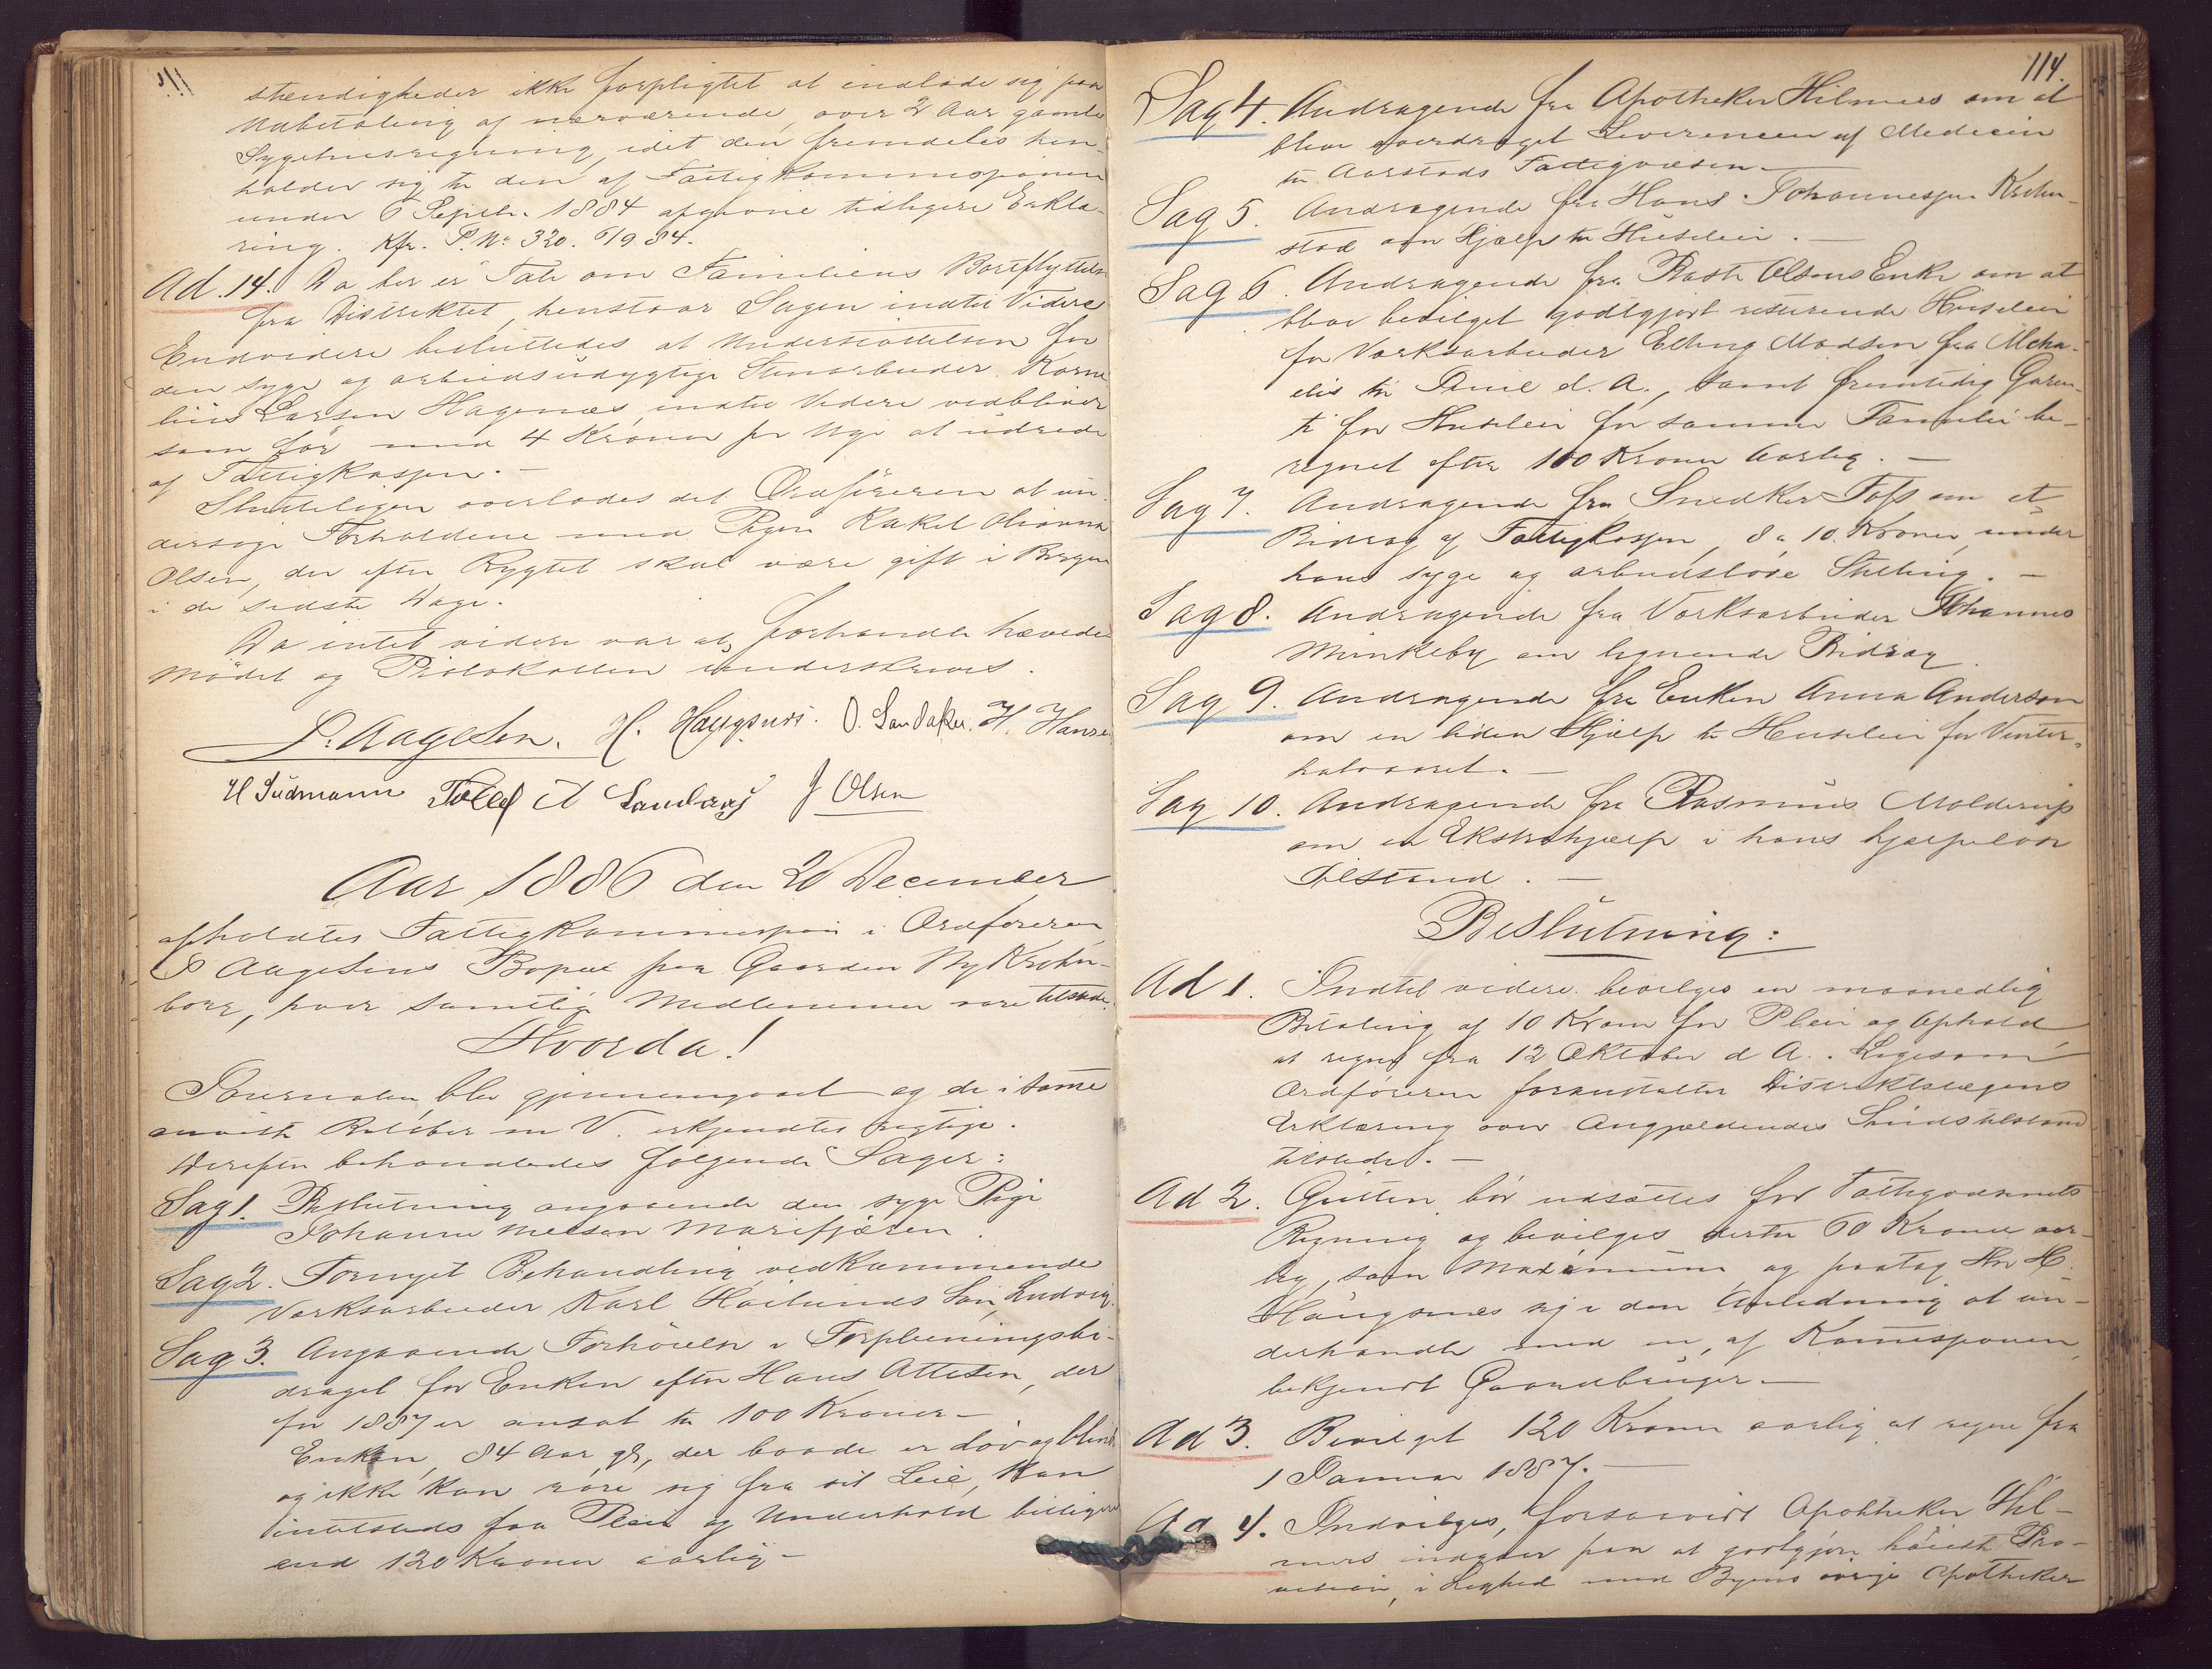 stændigheder ikke forpligtet at indlade sig paa
Udbetaling af nærværende, over 2 Aar gamle
Sygehusregning, idet den fremdeles hen-
holder sig til den af Fattigkommissjonen
under 6 Septbr. 1884 afgivne tidligere Erklæ-
ring. Kfr. P. No 320. 6/9 84.
Ad. 14. Da der er Tale om Familiens Bortflyttelse
fra Distriktet, henstaar Sagen indtil Videre
Endvidere besluttedes at Understøttelsen for
den syge og arbeidsudygtige Stenarbeider Korne-
lius Larsen Hagenæs, indtil Videre vedbliver
som før med 4 Kroner pr Uge at udrede
af Fattigkassen. —
Slutteligen overlodes det Ordføreren at un-
dersøge Forholdene med Pigen Rakel Olianna
Olsen, der efter Rygtet skal være gift i Bergen
i de sidste Dage.
Da intet videre var at forhandle hævedes
Mødet og Protokollen underskreves.
P. Aagesen. H. Haugsnæs. O. Sandaker. H. Hansen
H Sudmann J Olsen
Aar 1886 den 20 December
afholdtes Fattigkommission i Ordføreren
P Aagesens Bopæl paa Gaarden Ny Krohn-
borg, hvor samtlige Medlemmer vare tilstede.
Hvorda!
Journalen blev gjennemgaaet og de i samme
anviste Beløber m V. erkjendtes rigtige.
Derefter behandledes følgende Sager:
Sag 1. Beslutning angaaende den syge Pige
Johanne Melsen Marifjæren.
Sag 2. Fornyet Behandling vedkommende
Værksarbeider Karl Høilunds Søn, Ludvig.
Sag 3. Angaaende Forhøielse i Forpleiningsbi-
draget for Enken efter Hans Attesen, der
for 1887 er ansat til 100 Kroner —
Enken, 84 Aar gl, der baade er døv og blind
og ikke kan røre sig fra sit Leie, kan
intetsteds faa Pleie og Underhold billigere
end 120 Kroner aarlig —
114.
Sag 4. Andragende fra Apotheker Hilmers om at
blive overdraget Leverancen af Medicin
til Aarstads Fattigvæsen —
Sag 5. Andragende fra Hans Johannesjen Krohn-
stad om Hjælp til Husleie. —
Sag 6. Andragende fra Olsens Enke om at
blive bevilget godtgjort resterende Husleie
for Værksarbeider Elling Madsen fra Micha-
elis til Juul d. A., samt fremtidig Garan-
ti for Husleie for samme Familie be-
regnet efter 100 Kroner Aarlig. —
Sag 7. Andragende fra Snedker Foss om et
Bidrag af Fattigkassen, 8 a 10 Kroner, under
hans syge og arbeidsløse Stilling. —
Sag 8. Andragende fra Værksarbeider Johannes
Munkeby om lignende Bidrag.
Sag 9. Andragende fra Enken Anna Anderson
om en liden Hjælp til Husleie for Vinter-
halvaaret. —
Sag 10. Andragende fra Rasmus Molderup
om en Ekstrahjælp i hans hjælpeløse
Tilstand. —
Beslutning:
Ad 1. Indtil videre bevilges en maanedlig
Betaling af 10 Kroner for Pleie og Ophold
at regne fra 12 Oktober d A. Ligesom
Ordføreren foranstalter Distriktslægens
Erklæring over Angjældendes Sindstilstand
tilstede. —
Ad 2. Gutten bør udsættes for Fattigvæsenets
Regning og bevilges dertil 60 Kroner aar-
lig, som Maximum og paatog Hr H.
Haugsnæs sig i den Anledning at un-
derhandle med en, af Kommissjonen
bekjendt Gaardbruger —
Ad 3. Bevilget 120 Kroner aarlig at regne fra
1 Januar 1887. —
Ad 4. Indvilges, forsaavidt Apotheker Hil-
mers indgaar paa at godtgjøre høieste Pro-
, i Lighed med Byens øvrige Apotheker